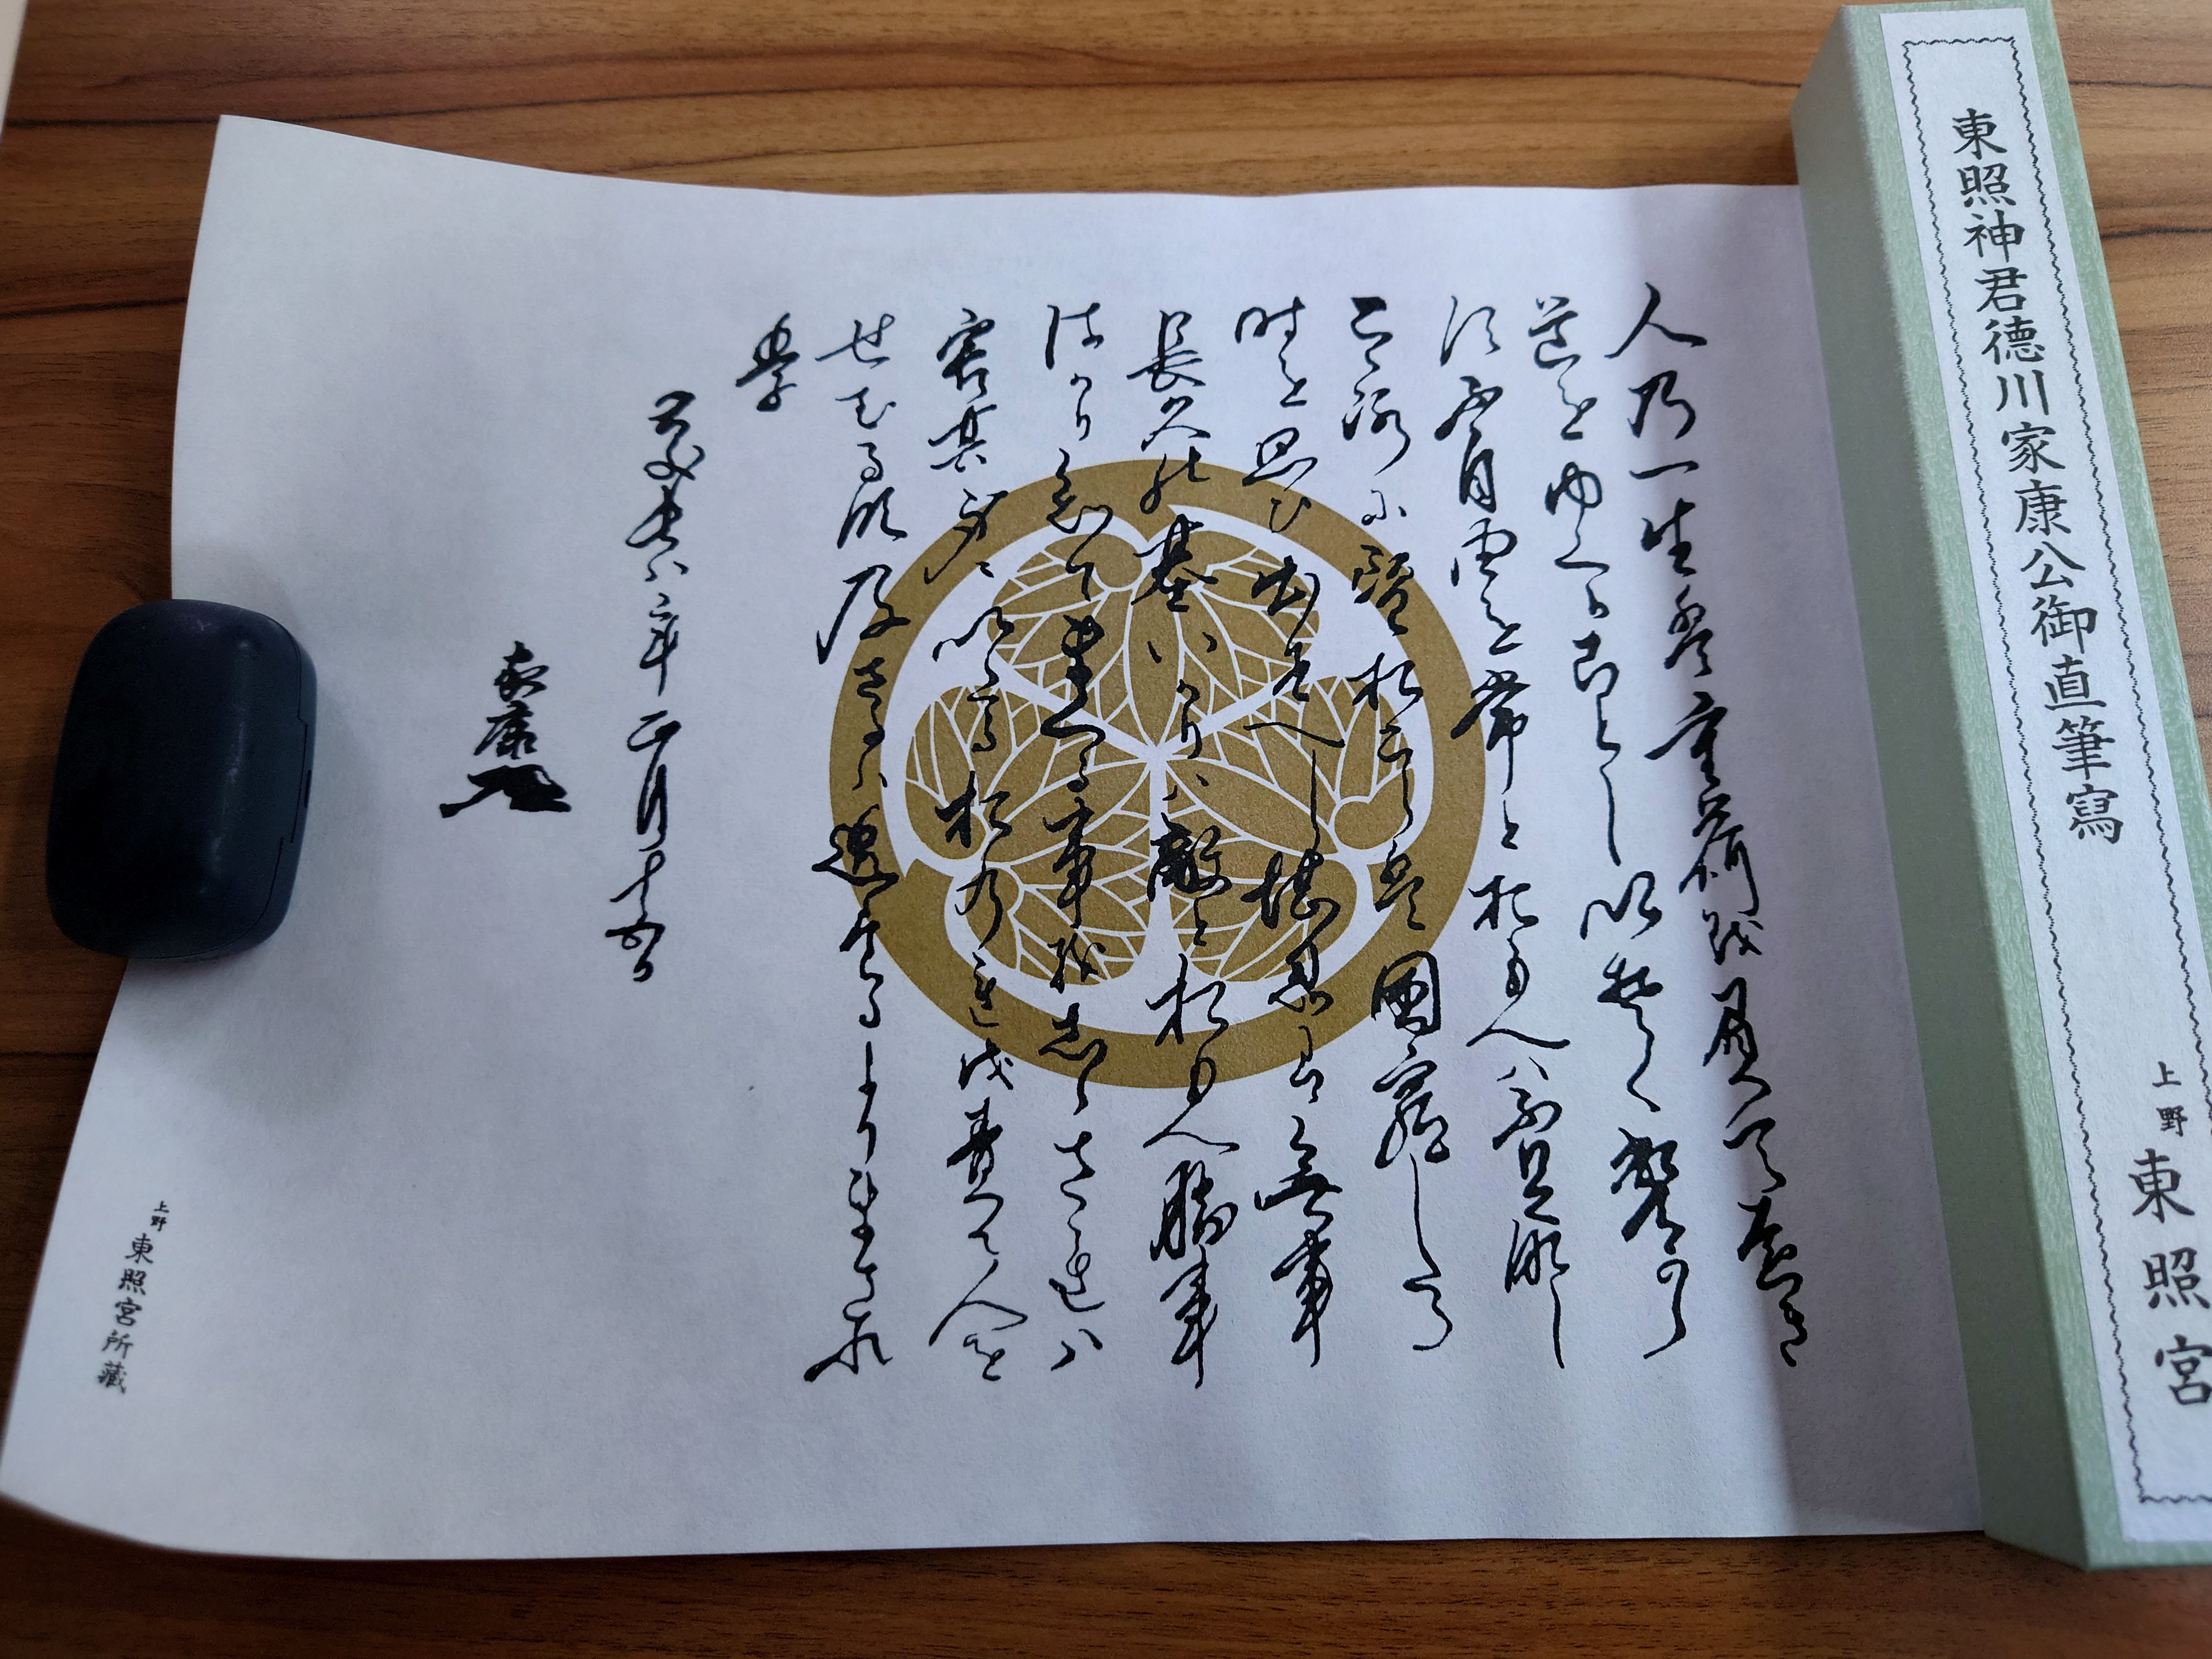 東照神君徳川家康公御直筆寫
上野
東照宮
人乃一生盤重荷越屓て遠き
道をゆくか古とし以楚く遍可ら
須不自由を常と於もへハ不足那し
こゝ路尓望於こら盤困窮したる
時を思ひ出春へし堪忍者無事
長久能基いかりハ敵と於もへ勝事
はかり知てまくる事越志らさ連ハ
害其身に以多る於乃連越責て人を
せむる那及さるハ過多るよりまされ
慶長八年正月十五日
家康
上野
東照宮所藏